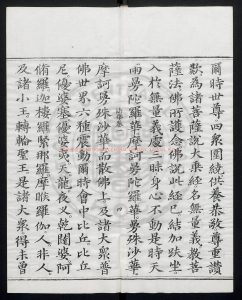 爾時世尊四眾圍繞供養恭敬尊重讚
歎為諸菩薩說大乘經名無量義教菩
薩法佛所護念佛說此經已結加趺坐
入於無量義處三昧身心不動是時天
雨曼陀羅華摩訶曼陀羅華曼殊沙華
摩訶曼殊沙華而散佛上及諸大眾普
佛世界六種震動爾時會中比丘比丘
尼優婆塞優婆夷天龍夜叉乾闥婆阿
脩羅迦樓羅緊那羅摩睺羅伽人非人
及諸小王轉輪聖王是諸大眾得未曾